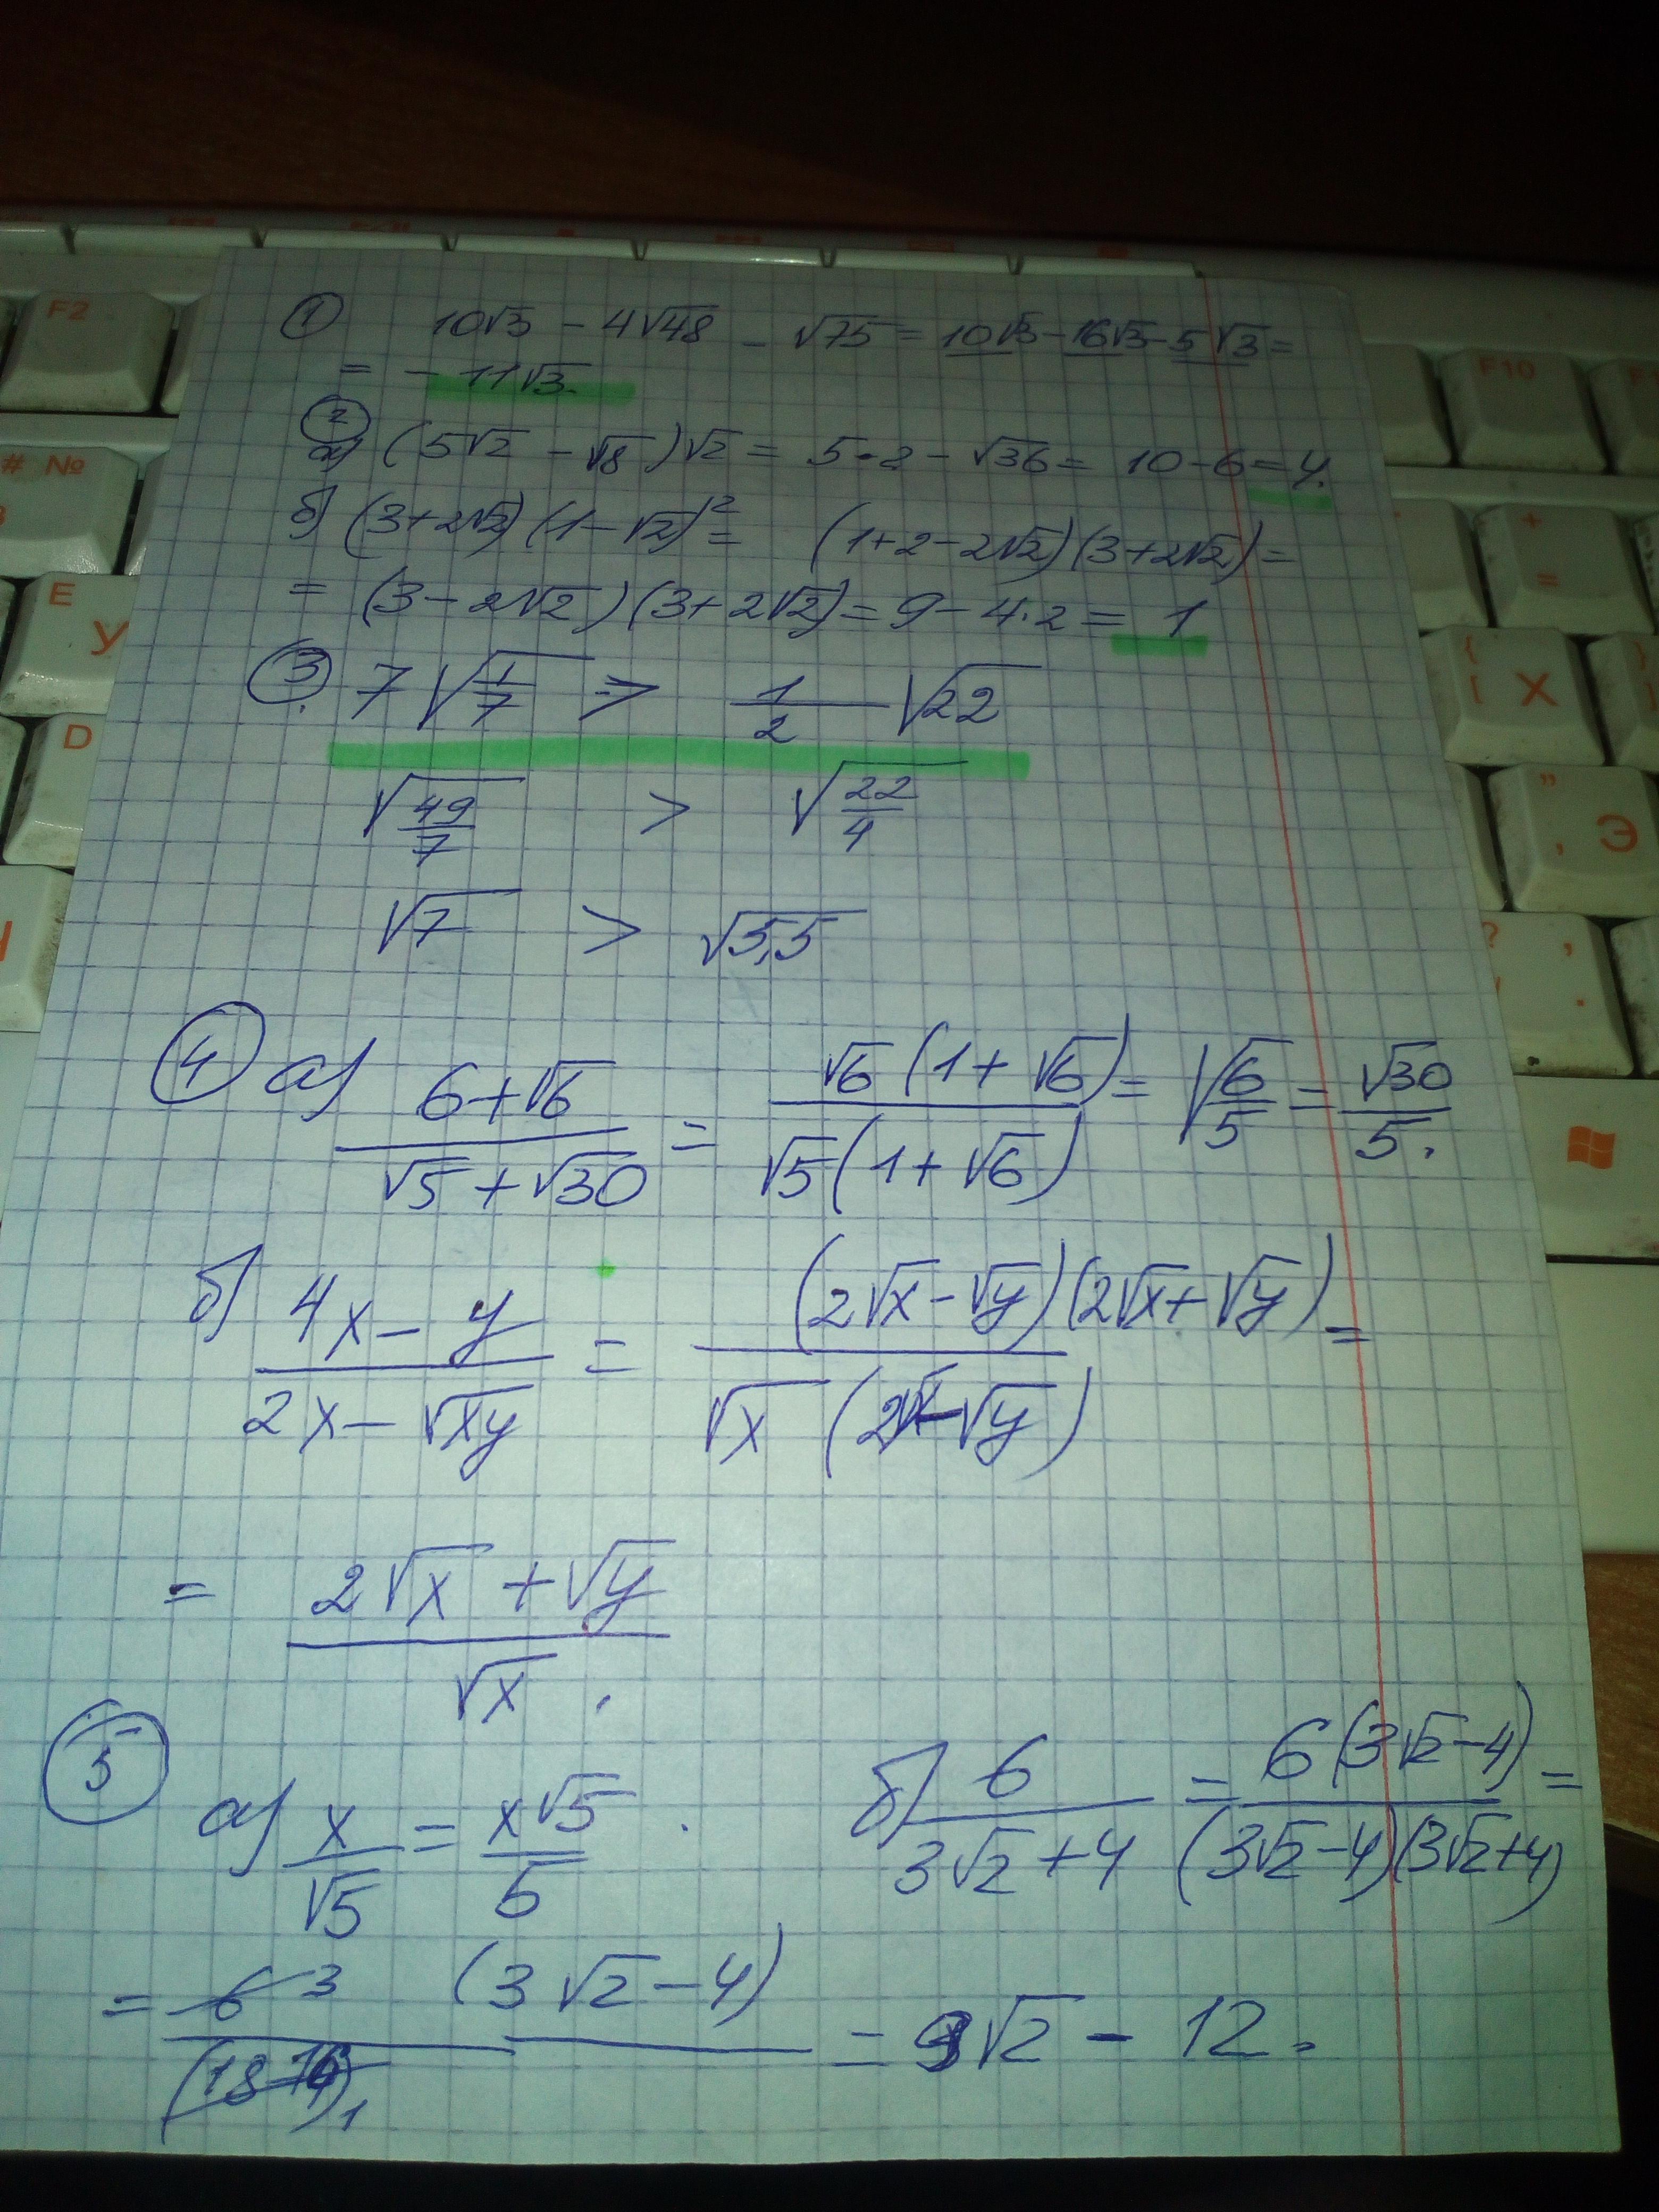 ① 10√3 - 4√48 - √75 = 10√3 - 16√3 - 5√3 =
= - 11√3.
②
а) (5√2 - √8)√2 = 5·2 - √36 = 10 - 6 = 4.
б) (3+2√2)(1-√2)² = (1+2-2√2)(3+2√2) =
= (3-2√2)(3+2√2) = 9 - 4·2 = 1
③ 7√(1/7) > 1/2 √22
√(49/7) > √(22/4)
√7 > √5,5
④ а) (6+√6)/(√5+√30) = (√6(1+√6))/(√5(1+√6)) = √(6/5) = √30/5.
б) (4x-y)/(2x-√xy) = ((2√x-√y)(2√x+√y))/(√x(2√x-√y)) =
= (2√x+√y)/√x.
⑤ а) x/√5 = x√5/5. б) 6/(3√2+4) = 6(3√2-4)/((3√2-4)(3√2+4)) =
= 6 3 (3√2-4)/(18-16) 1 = 9√2 - 12.
F2
# №
E
У
D
F10
+
=
{
[
Х
}
"
,
Э
?
,
.